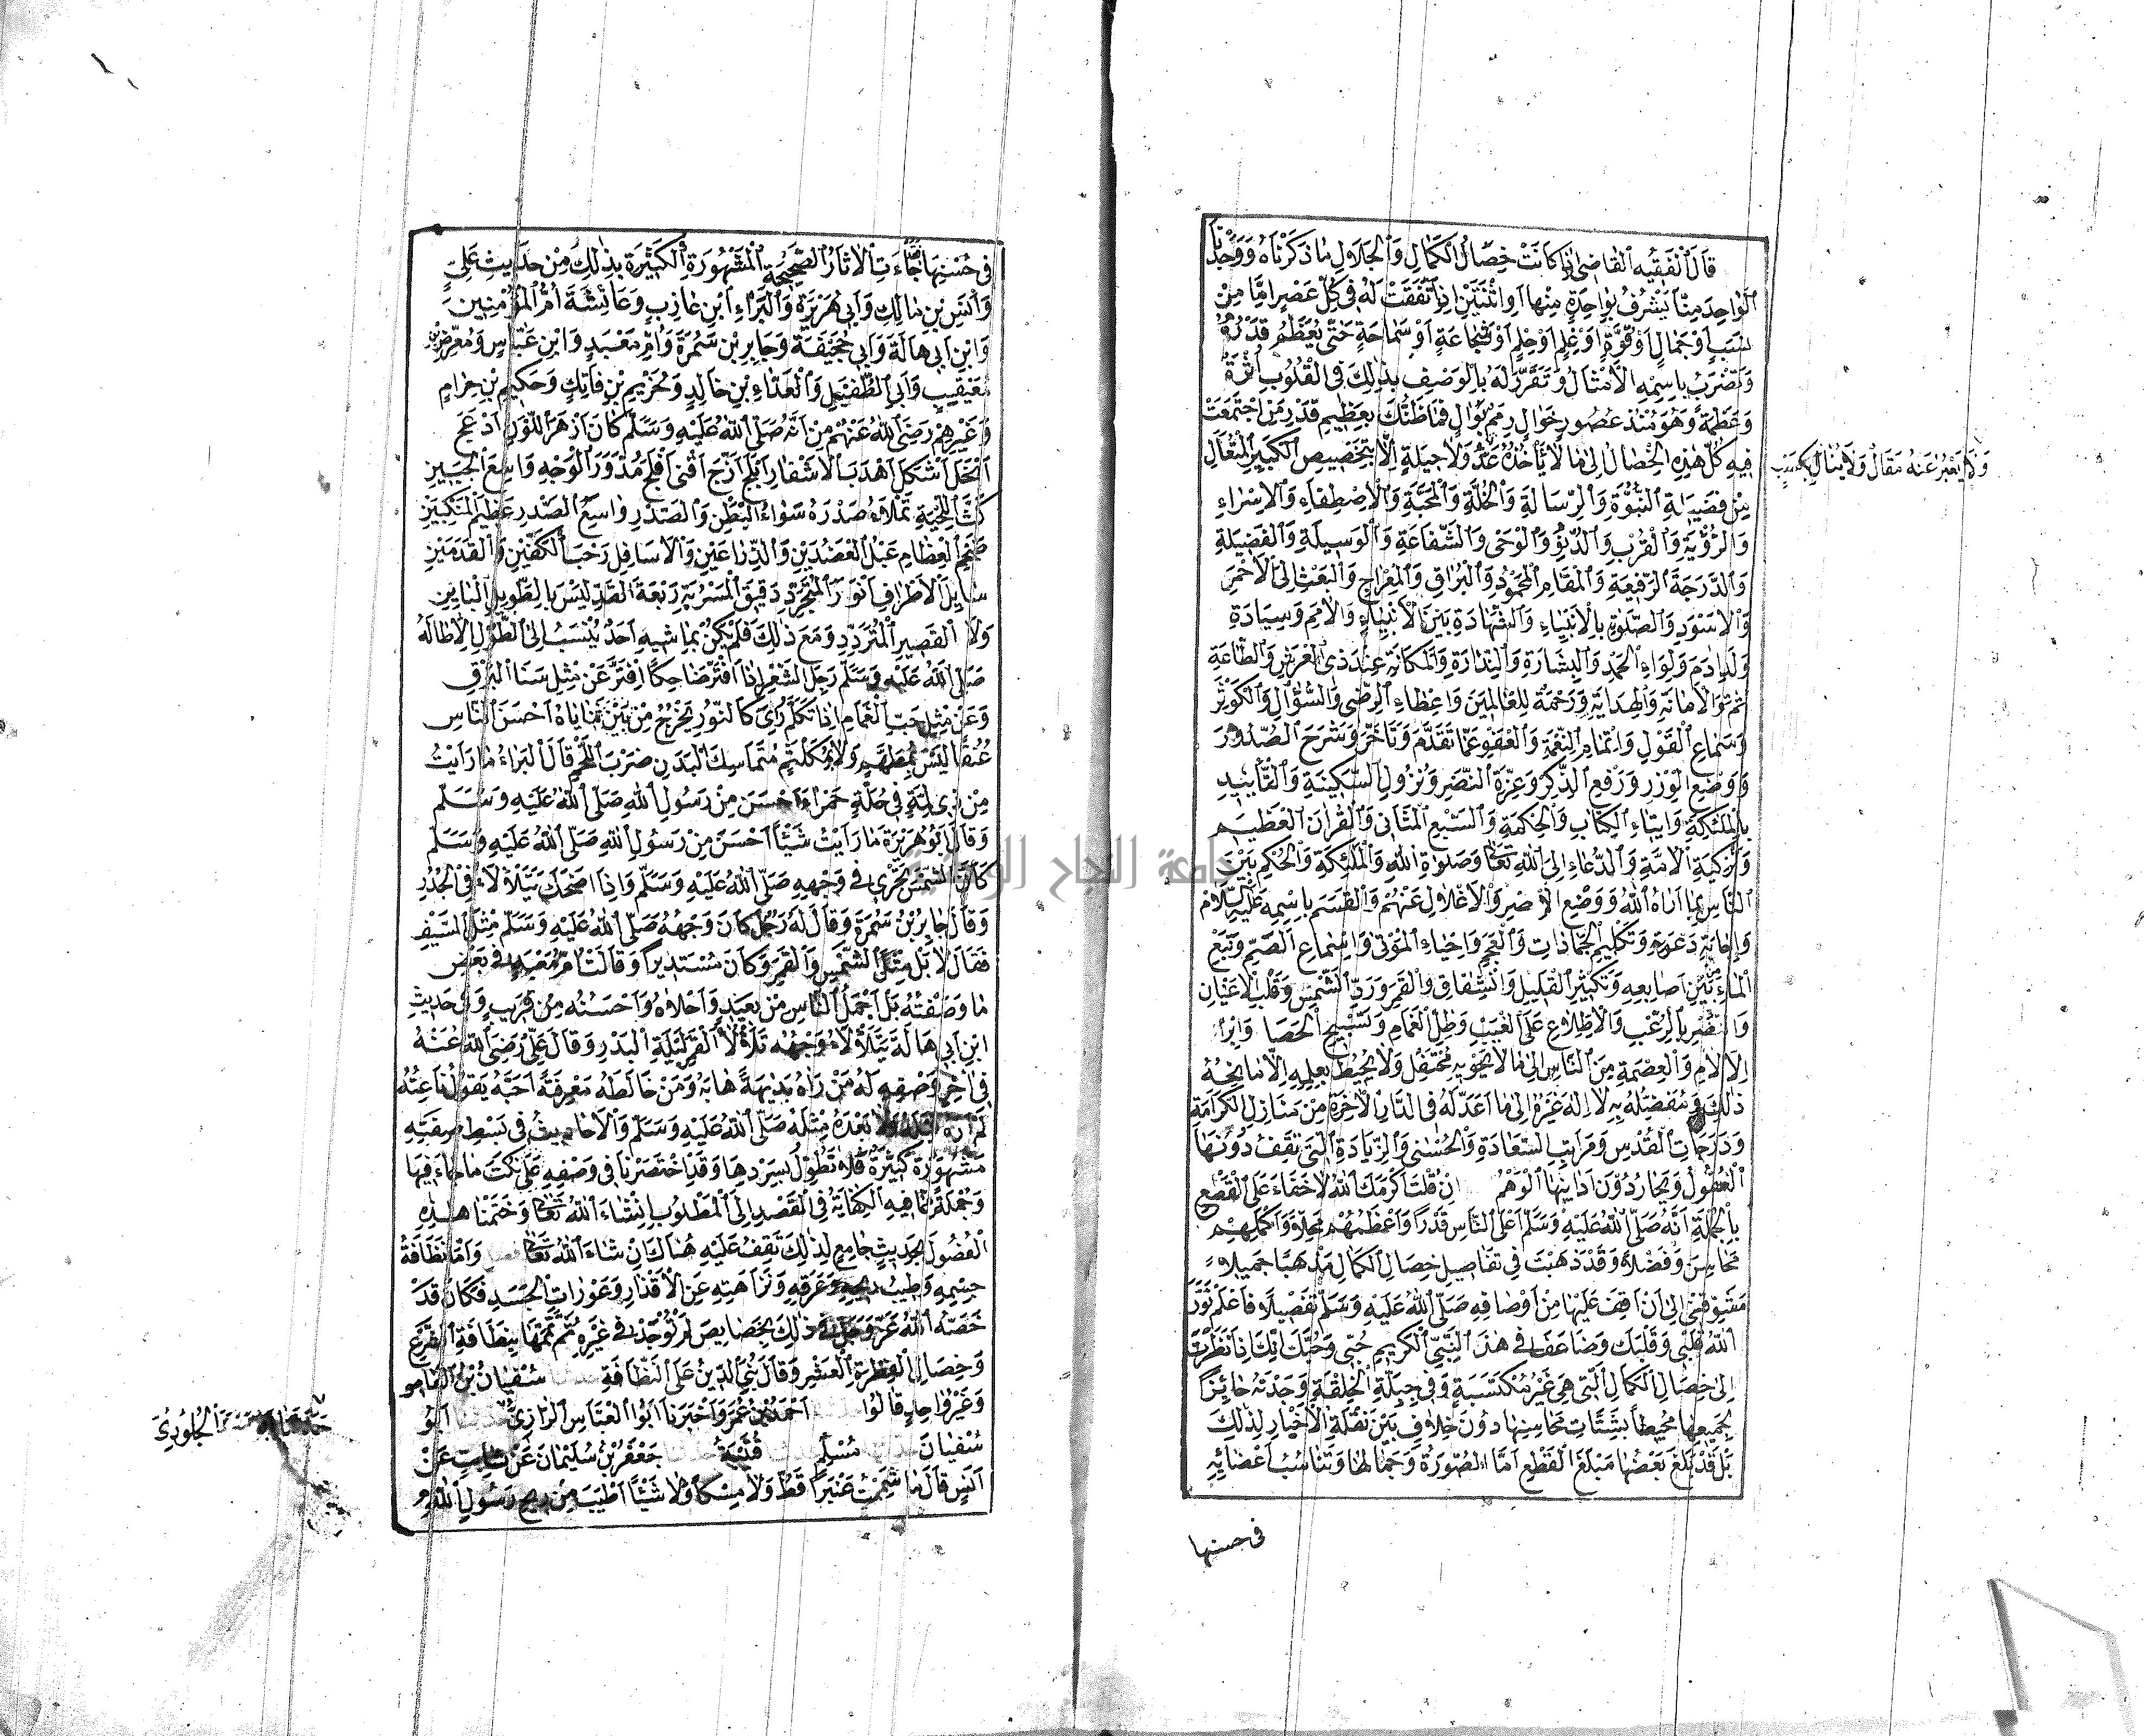 قَالَ الْفَقِيهُ الْقَاضِي إِذَا كَانَتْ خِصَالُ الْكَمَالِ وَالْجَلَالِ مَا ذَكَرْنَاهُ وَوَجَدْنَا
الْوَاحِدَ مِنَّا يَشْرُفُ بِوَاحِدَةٍ مِنْهَا أَوِ اثْنَتَيْنِ إِذَا اتَّفَقَتْ لَهُ فِي كُلِّ عَصْرٍ إِمَّا مِنْ
نَسَبٍ أَوْ جَمَالٍ أَوْ قُوَّةٍ أَوْ عِلْمٍ أَوْ حِلْمٍ أَوْ شَجَاعَةٍ أَوْ سَمَاحَةٍ حَتَّى يُعَظَّمَ قَدْرُهُ
وَتُضْرَبَ بِاسْمِهِ الْأَمْثَالُ وَتَقَرَّرَ لَهُ بِالْوَصْفِ بِذَلِكَ فِي الْقُلُوبِ أَثْرَةٌ
وَعَظَمَةٌ وَهُوَ مُنْذُ عُصُورٍ خَوَالٍ رِمَمٌ بَوَالٍ فَمَا ظَنُّكَ بِعَظِيمِ قَدْرِ مَنِ اجْتَمَعَتْ
فِيهِ كُلُّ هَذِهِ الْخِصَالِ إِلَى مَا لَا يَأْخُذُهُ عَدٌّ وَلَا حِيلَةٍ إِلَّا بِتَخْصِيصِ الْكَبِيرِ الْمُتَعَالِ
وَلَا يُعَبِّرُ عَنْهُ مَقَالٌ وَلَا يُنَالُ بِكَسْبٍ
مِنْ فَضِيلَةِ النُّبُوَّةِ وَالرِّسَالَةِ وَالْخُلَّةِ وَالْمَحَبَّةِ وَالْاِصْطِفَاءِ وَالْإِسْرَاءِ
وَالرُّؤْيَةِ وَالْقُرْبِ وَالدُّنُوِّ وَالْوَحْيِ وَالشَّفَاعَةِ وَالْوَسِيلَةِ وَالْفَضِيلَةِ
وَالدَّرَجَةِ الرَّفِيعَةِ وَالْمَقَامِ الْمَحْمُودِ وَالْبُرَاقِ وَالْمِعْرَاجِ وَالْبَعْثِ إِلَى الْأَحْمَرِ
وَالْأَسْوَدِ وَالصَّلَوةِ بِالْأَنْبِيَاءِ وَالشَّهَادَةِ بَيْنَ الْأَنْبِيَاءِ وَالْأُمَمِ وَسِيَادَةِ
وَلَدِ آدَمَ وَلِوَاءِ الْحَمْدِ وَالْبِشَارَةِ وَالنِّذَارَةِ وَالْمَكَانَةِ عِنْدَ ذِي الْعَرْشِ وَالطَّاعَةِ
ثَمَّ وَالْأَمَانَةِ وَالْهِدَايَةِ وَرَحْمَةً لِلْعَالَمِينَ وَإِعْطَاءِ الرِّضَى وَالسُّؤْلِ وَالْكَوْثَرِ
وَسَمَاعِ الْقَوْلِ وَإِتْمَامِ النِّعْمَةِ وَالْعَفْوِ عَمَّا تَقَدَّمَ وَتَأَخَّرَ وَشَرْحِ الصُّدُورِ
وَوَضْعِ الْوِزْرِ وَرَفْعِ الذِّكْرِ وَعِزَّةِ النَّصْرِ وَنُزُولِ السَّكِينَةِ وَالتَّأْيِيدِ
بِالْمَلَئِكَةِ وَإِيتَاءِ الْكِتَابِ وَالْحِكْمَةِ وَالسَّبْعِ الْمَثَانِي وَالْقُرْآنِ الْعَظِيمِ
وَتَزْكِيَةِ الْأُمَّةِ وَالدُّعَاءِ إِلَى اللهِ تَعَالَى وَصَلَوةِ اللهِ وَالْمَلَئِكَةِ وَالْحُكْمِ بَيْنَ
النَّاسِ بِمَا أَرَاهُ اللهُ وَوَضْعِ الْإِصْرِ وَالْأَغْلَالِ عَنْهُمْ وَالْقَسَمِ بِاسْمِهِ عَلَيْهِ السَّلَامُ
وَإِجَابَةِ دَعْوَتِهِ وَتَكْلِيمِ الْجَمَادَاتِ وَالْعُجْمِ وَإِحْيَاءِ الْمَوْتَى وَإِسْمَاعِ الصُّمِّ وَنَبْعِ
الْمَاءِ مِنْ بَيْنِ أَصَابِعِهِ وَتَكْثِيرِ الْقَلِيلِ وَانْشِقَاقِ الْقَمَرِ وَرَدِّ الشَّمْسِ وَقَلْبِ الْأَعْيَانِ
وَالنَّصْرِ بِالرُّعْبِ وَالْاِطِّلَاعِ عَلَى الْغَيْبِ وَظِلِّ الْغَمَامِ وَتَسْبِيحِ الْحَصَا وَإِبْرَاءِ
الْآلَامِ وَالْعِصْمَةِ مِنَ النَّاسِ إِلَى مَا لَا يَحْوِيهِ مُحْتَفِلٌ وَلَا يُحِيطُ بِعِلْمِهِ إِلَّا مَانِحُهُ
ذَلِكَ وَمُفَضِّلُهُ بِهِ لَا إِلَهَ غَيْرُهُ إِلَى مَا أَعَدَّ لَهُ فِي الدَّارِ الْآخِرَةِ مِنْ مَنَازِلِ الْكَرَامَةِ
وَدَرَجَاتِ الْقُدْسِ وَمَرَاتِبِ السَّعَادَةِ وَالْحُسْنَى وَالزِّيَادَةِ الَّتِي تَقِفُ دُونَهَا
الْعُقُولُ وَيَحَارُ دُونَ أَدَانِيهَا الْوَهْمُ إِنْ قُلْتَ أَكْرَمَكَ اللهُ لَا خَفَاءَ عَلَى الْقَطْعِ
بِالْجُمْلَةِ أَنَّهُ صَلَّى اللهُ عَلَيْهِ وَسَلَّمَ أَعْلَى النَّاسِ قَدْرًا وَأَعْظَمُهُمْ مَحَلًّا وَأَكْمَلُهُمْ
مَحَاسِنَ وَفَضْلًا وَقَدْ ذَهَبْتَ فِي تَفَاصِيلِ خِصَالِ الْكَمَالِ مَذْهَبًا جَمِيلًا
شَوَّقَنِي إِلَى أَنْ أَقِفَ عَلَيْهَا مِنْ أَوْصَافِهِ صَلَّى اللهُ عَلَيْهِ وَسَلَّمَ تَفْصِيلًا فَاعْلَمْ نَوَّرَ
اللهُ قَلْبِي وَقَلْبَكَ وَضَاعَفَ فِي هَذَا النَّبِيِّ الْكَرِيمِ حُبِّي وَحُبَّكَ أَنَّكَ إِذَا نَظَرْتَ
إِلَى خِصَالِ الْكَمَالِ الَّتِي هِيَ غَيْرُ مُكْتَسَبَةٍ وَفِي جِبِلَّةِ الْخِلْقَةِ وَجَدْتَهُ حَائِزًا
لِجَمِيعِهَا مُحِيطًا بِشَتَاتِ مَحَاسِنِهَا دُونَ خِلَافٍ بَيْنَ نَقَلَةِ الْأَخْبَارِ لِذَلِكَ
بَلْ قَدْ بَلَغَ بَعْضُهَا مَبْلَغَ الْقَطْعِ أَمَّا الصُّورَةُ وَجَمَالُهَا وَتَنَاسُبُ أَعْضَائِهِ
فى حسنها
فِي حُسْنِهَا فَقَدْ جَاءَتِ الْآثَارُ الصَّحِيحَةُ الْمَشْهُورَةُ الْكَثِيرَةُ بِذَلِكَ مِنْ حَدِيثِ عَلِيٍّ
وَأَنَسِ بْنِ مَالِكٍ وَأَبِي هُرَيْرَةَ وَالْبَرَاءِ ابْنِ عَازِبٍ وَعَائِشَةَ أُمِّ الْمُؤْمِنِينَ
وَابْنِ أَبِي هَالَةَ وَأَبِي جُحَيْفَةَ وَجَابِرِ بْنِ سَمُرَةَ وَأُمِّ مَعْبَدٍ وَابْنِ عَبَّاسٍ وَمُعَرِّضِ بْنِ
مُعَيْقِيبٍ وَأَبِي الطُّفَيْلِ وَالْعَدَّاءِ بْنِ خَالِدٍ وَخُزَيْمِ بْنِ فَاتِكٍ وَحَكِيمِ بْنِ حِزَامٍ
وَغَيْرِهِمْ رَضِيَ اللهُ عَنْهُمْ مِنْ أَنَّهُ صَلَّى اللهُ عَلَيْهِ وَسَلَّمَ كَانَ أَزْهَرَ اللَّوْنِ أَدْعَجَ
أَنْجَلَ أَشْكَلَ أَهْدَبَ الْأَشْفَارِ أَبْلَجَ أَزَجَّ أَقْنَى أَفْلَجَ مُدَوَّرَ الْوَجْهِ وَاسِعَ الْجَبِينِ
كَثَّ اللِّحْيَةِ تَمْلَأُ صَدْرَهُ سَوَاءَ الْبَطْنِ وَالصَّدْرِ وَاسِعَ الصَّدْرِ عَظِيمَ الْمَنْكِبَيْنِ
ضَخْمَ الْعِظَامِ عَبْلَ الْعَضُدَيْنِ وَالذِّرَاعَيْنِ وَالْأَسَافِلِ رَحْبَ الْكَفَّيْنِ وَالْقَدَمَيْنِ
سَائِلَ الْأَطْرَافِ أَنْوَرَ الْمُتَجَرَّدِ دَقِيقَ الْمَسْرُبَةِ رَبْعَةَ الْقَدِّ لَيْسَ بِالطَّوِيلِ الْبَائِنِ
وَلَا الْقَصِيرِ الْمُتَرَدِّدِ وَمَعَ ذَلِكَ فَلَمْ يَكُنْ يُمَاشِيهِ أَحَدٌ يُنْسَبُ إِلَى الطُّولِ إِلَّا طَالَهُ
صَلَّى اللهُ عَلَيْهِ وَسَلَّمَ رَجِلَ الشَّعْرِ إِذَا افْتَرَّ ضَاحِكًا افْتَرَّ عَنْ مِثْلِ سَنَا الْبَرْقِ
وَعَنْ مِثْلِ حَبِّ الْغَمَامِ إِذَا تَكَلَّمَ رُئِيَ كَالنُّورِ يَخْرُجُ مِنْ بَيْنِ ثَنَايَاهُ أَحْسَنَ النَّاسِ
عُنُقًا لَيْسَ بِمُطَهَّمٍ وَلَا مُكَلْثَمٍ مُتَمَاسِكَ الْبَدَنِ ضَرْبَ اللَّحْمِ قَالَ الْبَرَاءُ مَا رَأَيْتُ
مِنْ ذِي لِمَّةٍ فِي حُلَّةٍ حَمْرَاءَ أَحْسَنَ مِنْ رَسُولِ اللهِ صَلَّى اللهُ عَلَيْهِ وَسَلَّمَ
وَقَالَ أَبُو هُرَيْرَةَ مَا رَأَيْتُ شَيْئًا أَحْسَنَ مِنْ رَسُولِ اللهِ صَلَّى اللهُ عَلَيْهِ وَسَلَّمَ
كَأَنَّ الشَّمْسَ تَجْرِي فِي وَجْهِهِ صَلَّى اللهُ عَلَيْهِ وَسَلَّمَ وَإِذَا ضَحِكَ يَتَلَأْلَأُ فِي الْجُدُرِ
وَقَالَ جَابِرُ بْنُ سَمُرَةَ وَقَالَ لَهُ رَجُلٌ كَانَ وَجْهُهُ صَلَّى اللهُ عَلَيْهِ وَسَلَّمَ مِثْلَ السَّيْفِ
فَقَالَ لَا بَلْ مِثْلَ الشَّمْسِ وَالْقَمَرِ وَكَانَ مُسْتَدِيرًا وَقَالَتْ أُمُّ مَعْبَدٍ فِي بَعْضِ
مَا وَصَفَتْهُ بِهِ أَجْمَلُ النَّاسِ مِنْ بَعِيدٍ وَأَحْلَاهُ وَأَحْسَنُهُ مِنْ قَرِيبٍ وَفِي حَدِيثِ
ابْنِ أَبِي هَالَةَ يَتَلَأْلَأُ وَجْهُهُ تَلَأْلُأَ الْقَمَرِ لَيْلَةَ الْبَدْرِ وَقَالَ عَلِيٌّ رَضِيَ اللهُ عَنْهُ
فِي آخِرِ وَصْفِهِ لَهُ مَنْ رَآهُ بَدِيهَةً هَابَهُ وَمَنْ خَالَطَهُ مَعْرِفَةً أَحَبَّهُ يَقُولُ نَاعِتُهُ
لَمْ أَرَ قَبْلَهُ وَلَا بَعْدَهُ مِثْلَهُ صَلَّى اللهُ عَلَيْهِ وَسَلَّمَ وَالْأَحَادِيثُ فِي بَسْطِ صِفَتِهِ
مَشْهُورَةٌ كَثِيرَةٌ فَلَا نُطَوِّلُ بِسَرْدِهَا وَقَدِ اخْتَصَرْنَا فِي وَصْفِهِ عَلَى نُكَتِ مَا جَاءَ فِيهَا
وَجُمْلَةٍ مِمَّا فِيهِ الْكِفَايَةُ فِي الْقَصْدِ إِلَى الْمَطْلُوبِ إِنْ شَاءَ اللهُ تَعَالَى وَخَتَمْنَا هَذِهِ
الْفُصُولَ بِحَدِيثٍ جَامِعٍ لِذَلِكَ تَقِفُ عَلَيْهِ هُنَاكَ إِنْ شَاءَ اللهُ تَعَالَى وَأَمَّا نَظَافَةُ
جِسْمِهِ وَطِيبُ رِيحِهِ وَعَرَقِهِ وَنَزَاهَتِهِ عَنِ الْأَقْذَارِ وَعَوْرَاتِ الْجَسَدِ فَكَانَ قَدْ
خَصَّهُ اللهُ عَزَّ وَجَلَّ فِي ذَلِكَ بِخَصَائِصَ لَمْ تُوجَدْ فِي غَيْرِهِ ثُمَّ تَمَّمَهَا بِنَظَافَةِ الشَّرْعِ
وَخِصَالِ الْفِطْرَةِ الْعَشْرِ وَقَالَ بُنِيَ الدِّينُ عَلَى النَّظَافَةِ سُفْيَانُ بْنُ الْعَاصِ
وَغَيْرُ وَاحِدٍ قَالُوا أَحْمَدُ بْنُ عُمَرَ وَأَخْبَرَنَا أَبُو الْعَبَّاسِ الرَّازِيُّ أَبُو
الْجُلُودِيُّ
سُفْيَانَ مُسْلِمٌ قُتَيْبَةُ جَعْفَرُ بْنُ سُلَيْمَانَ عَنْ ثَابِتٍ عَنْ
أَنَسٍ قَالَ مَا شَمَمْتُ عَنْبَرًا قَطُّ وَلَا مِسْكًا وَلَا شَيْئًا أَطْيَبَ مِنْ رِيحِ رَسُولِ اللهِ
جامعة النجاح الوطنية